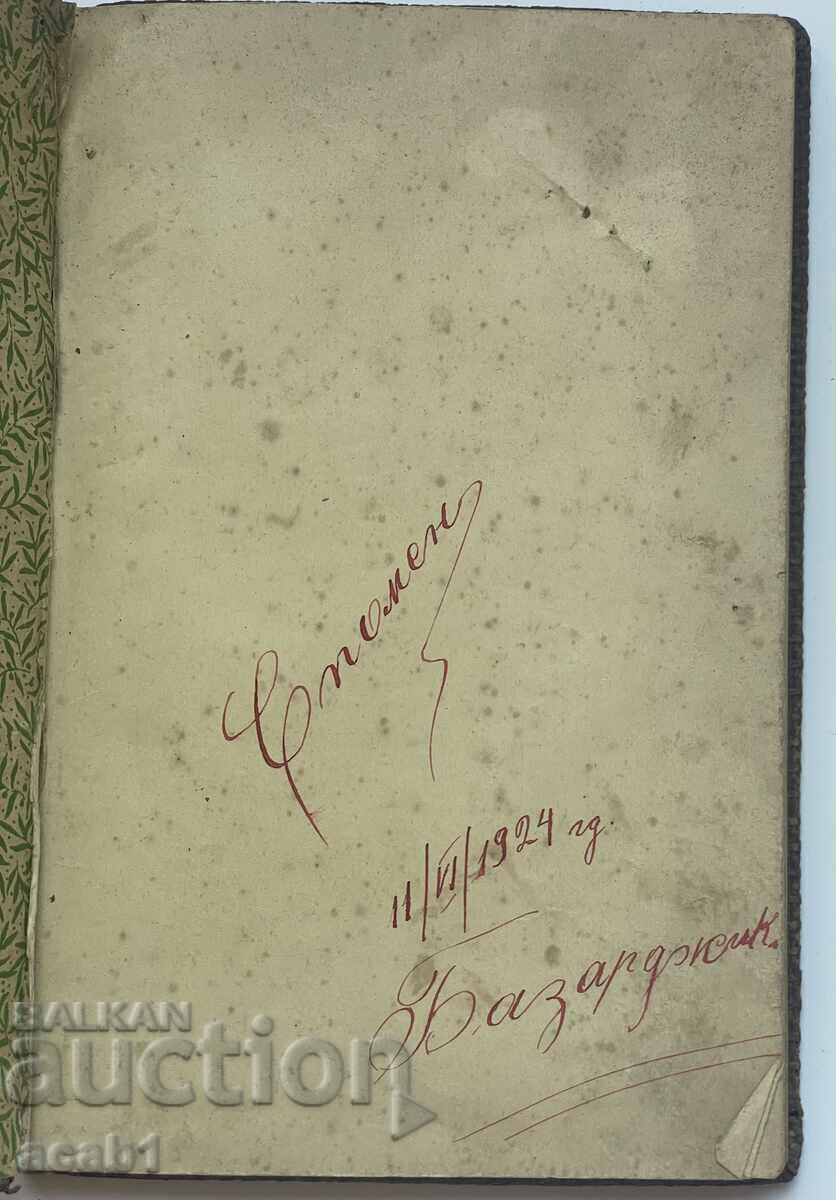 Спомен
11/VI/1924 гд.
Базарджик.
BALKAN
auction
acab1